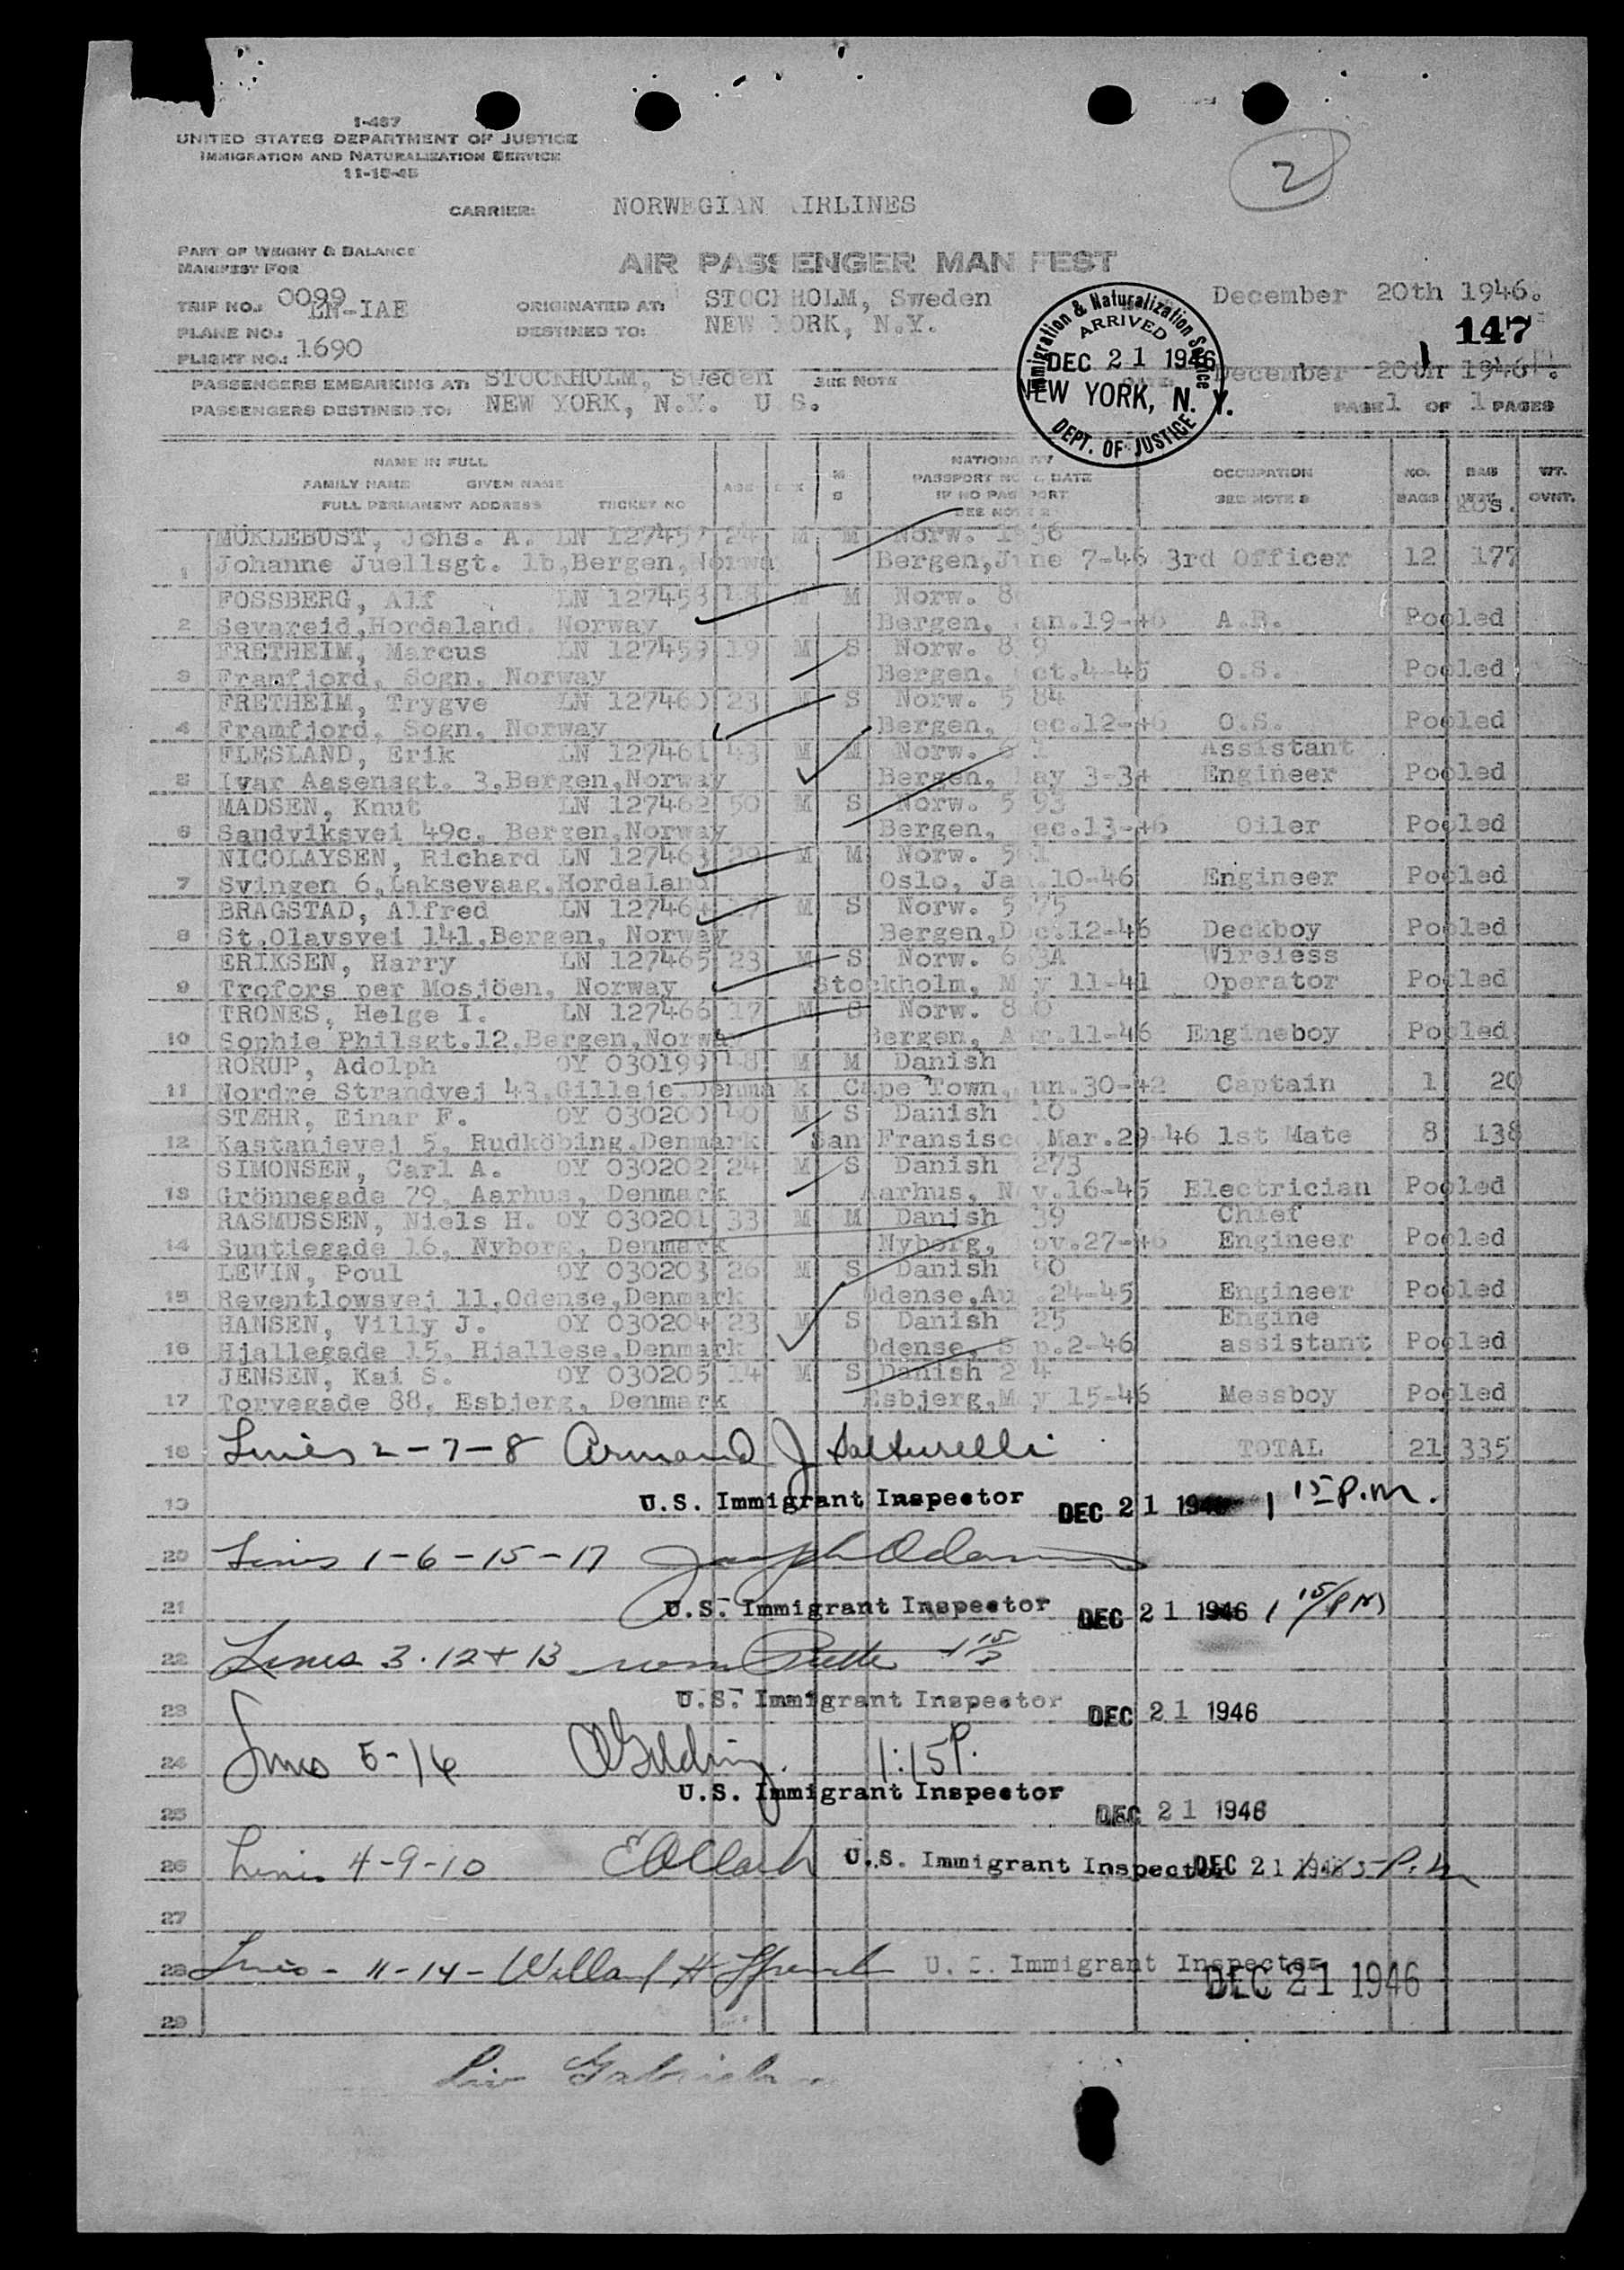 I-467
UNITED STATES DEPARTMENT OF JUSTICE
IMMIGRATION AND NATURALIZATION SERVICE
11-15-45
2
CARRIER: NORWEGIAN AIRLINES
PART OF WEIGHT & BALANCE
MANIFEST FOR
AIR PASSENGER MANIFEST
TRIP NO.: 0099 ORIGINATED AT: STOCKHOLM, Sweden December 20th 1946.
PLANE NO.: LN-IAE DESTINED TO: NEW YORK, N.Y.
147
FLIGHT NO.: 1690
Immigration & Naturalization Service
ARRIVED
DEC 21 1946
NEW YORK, N. Y.
DEPT. OF JUSTICE
PASSENGERS EMBARKING AT: STOCKHOLM, Sweden SEE NOTE DATE: December 20th 1946.
PASSENGERS DESTINED TO: NEW YORK, N.Y. U.S. PAGE 1 OF 1 PAGES
NAME IN FULL
FAMILY NAME GIVEN NAME
FULL PERMANENT ADDRESS TICKET NO
AGE SEX M S
NATIONALITY
PASSPORT NO & DATE
IF NO PASSPORT
SEE NOTE 2
OCCUPATION
SEE NOTE 3
NO. BAGS
BAG WT. KGS.
WT. OVNT.
MÖKLEBUST, Johs. A. LN 127457 24 M M Norw. 1 36
1 Johanne Juellsgt. 1b,Bergen,Norwa Bergen,June 7-46 3rd Officer 12 177
FOSSBERG, Alf LN 127458 48 M M Norw. 8
2 Sevareid,Hordaland. Norway Bergen, an.19-46 A.B. Pooled
FRETHEIM, Marcus LN 127459 19 M S Norw. 8 9
3 Framfjord, Sogn, Norway Bergen, ct.4-45 O.S. Pooled
FRETHEIM, Trygve LN 127460 23 M S Norw. 5 84
4 Framfjord, Sogn, Norway Bergen, ec.12-46 O.S. Pooled
FLESLAND, Erik LN 127461 43 M M Norw. 1 Assistant
5 Ivar Aasensgt. 3,Bergen,Norway Bergen, ay 3-34 Engineer Pooled
MADSEN, Knut LN 127462 50 M S Norw. 5 93
6 Sandviksvei 49c, Bergen,Norway Bergen, ec.13-46 Oiler Pooled
NICOLAYSEN, Richard LN 127463 29 M M Norw. 5 1
7 Svingen 6,Laksevaag,Hordaland Oslo, Jan.10-46 Engineer Pooled
BRAGSTAD, Alfred LN 127464 17 M S Norw. 5 75
8 St.Olavsvei 141,Bergen, Norway Bergen,D c.12-46 Deckboy Pooled
ERIKSEN, Harry LN 127465 23 M S Norw. 6 3A Wireless
9 Trofors per Mosjöen, Norway Stockholm, M y 11-41 Operator Pooled
TRONES, Helge I. LN 127466 17 M S Norw. 8 0
10 Sophie Philsgt.12,Bergen,Norway Bergen, A r.11-46 Engineboy Pooled
RORUP, Adolph OY 030199 48 M M Danish
11 Nordre Strandvej 43,Gilleje Denma k Cape Town, un.30-42 Captain 1 20
STÆHR, Einar F. OY 030200 40 M S Danish 10
12 Kastanjevej 5, Rudköbing,Denmark San Fransisco Mar.29-46 1st Mate 8 138
SIMONSEN, Carl A. OY 030202 24 M S Danish 273
13 Grönnegade 79, Aarhus, Denmark Aarhus, N v.16-45 Electrician Pooled
RASMUSSEN, Niels H. OY 030201 33 M M Danish 39 Chief
14 Suntiegade 16, Nyborg, Denmark Nyborg, ov.27-46 Engineer Pooled
LEVIN, Poul OY 030203 26 M S Danish 90
15 Reventlowsvej 11,Odense,Denmark Odense,Au .24-45 Engineer Pooled
HANSEN, Villy J. OY 030204 23 M S Danish 25 Engine
16 Hjallegade 15, Hjallese,Denmark Odense, S p.2-46 assistant Pooled
JENSEN, Kai S. OY 030205 14 M S Danish 2 4
17 Torvegade 88, Esbjerg, Denmark Esbjerg,M y 15-46 Messboy Pooled
18 Lines 2-7-8 Armand J TOTAL 21 335
19 U.S. Immigrant Inspector DEC 21 1946 1 15 P.M.
20 Lines 1-6-15-17 Joseph
21 U.S. Immigrant Inspector DEC 21 1946 1 15/PM
22 Lines 3.12+13 1 15
23 U.S. Immigrant Inspector DEC 21 1946
24 Lines 5-16 1:15P.
U.S. Immigrant Inspector
25 DEC 21 1946
26 Lines 4-9-10 U.S. Immigrant Inspector DEC 21 1946 P.M
27
28 Lines - 11-14- Willard H U.S. Immigrant Inspector DEC 21 1946
29